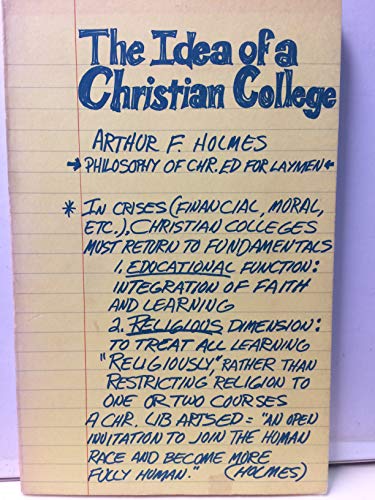 The Idea of a
Christian College
ARTHUR F. HOLMES
→ PHILOSOPHY OF CHR. ED FOR LAYMEN ←
* IN CRISES (FINANCIAL, MORAL,
ETC.), CHRISTIAN COLLEGES
MUST RETURN TO FUNDAMENTALS
1. EDUCATIONAL FUNCTION:
INTEGRATION OF FAITH
AND LEARNING
2. RELIGIOUS DIMENSION:
TO TREAT ALL LEARNING
"RELIGIOUSLY" RATHER THAN
RESTRICTING RELIGION TO
ONE OR TWO COURSES
A CHR. LIB ARTS ED = "AN OPEN
INVITATION TO JOIN THE HUMAN
RACE AND BECOME MORE
FULLY HUMAN." (HOLMES)